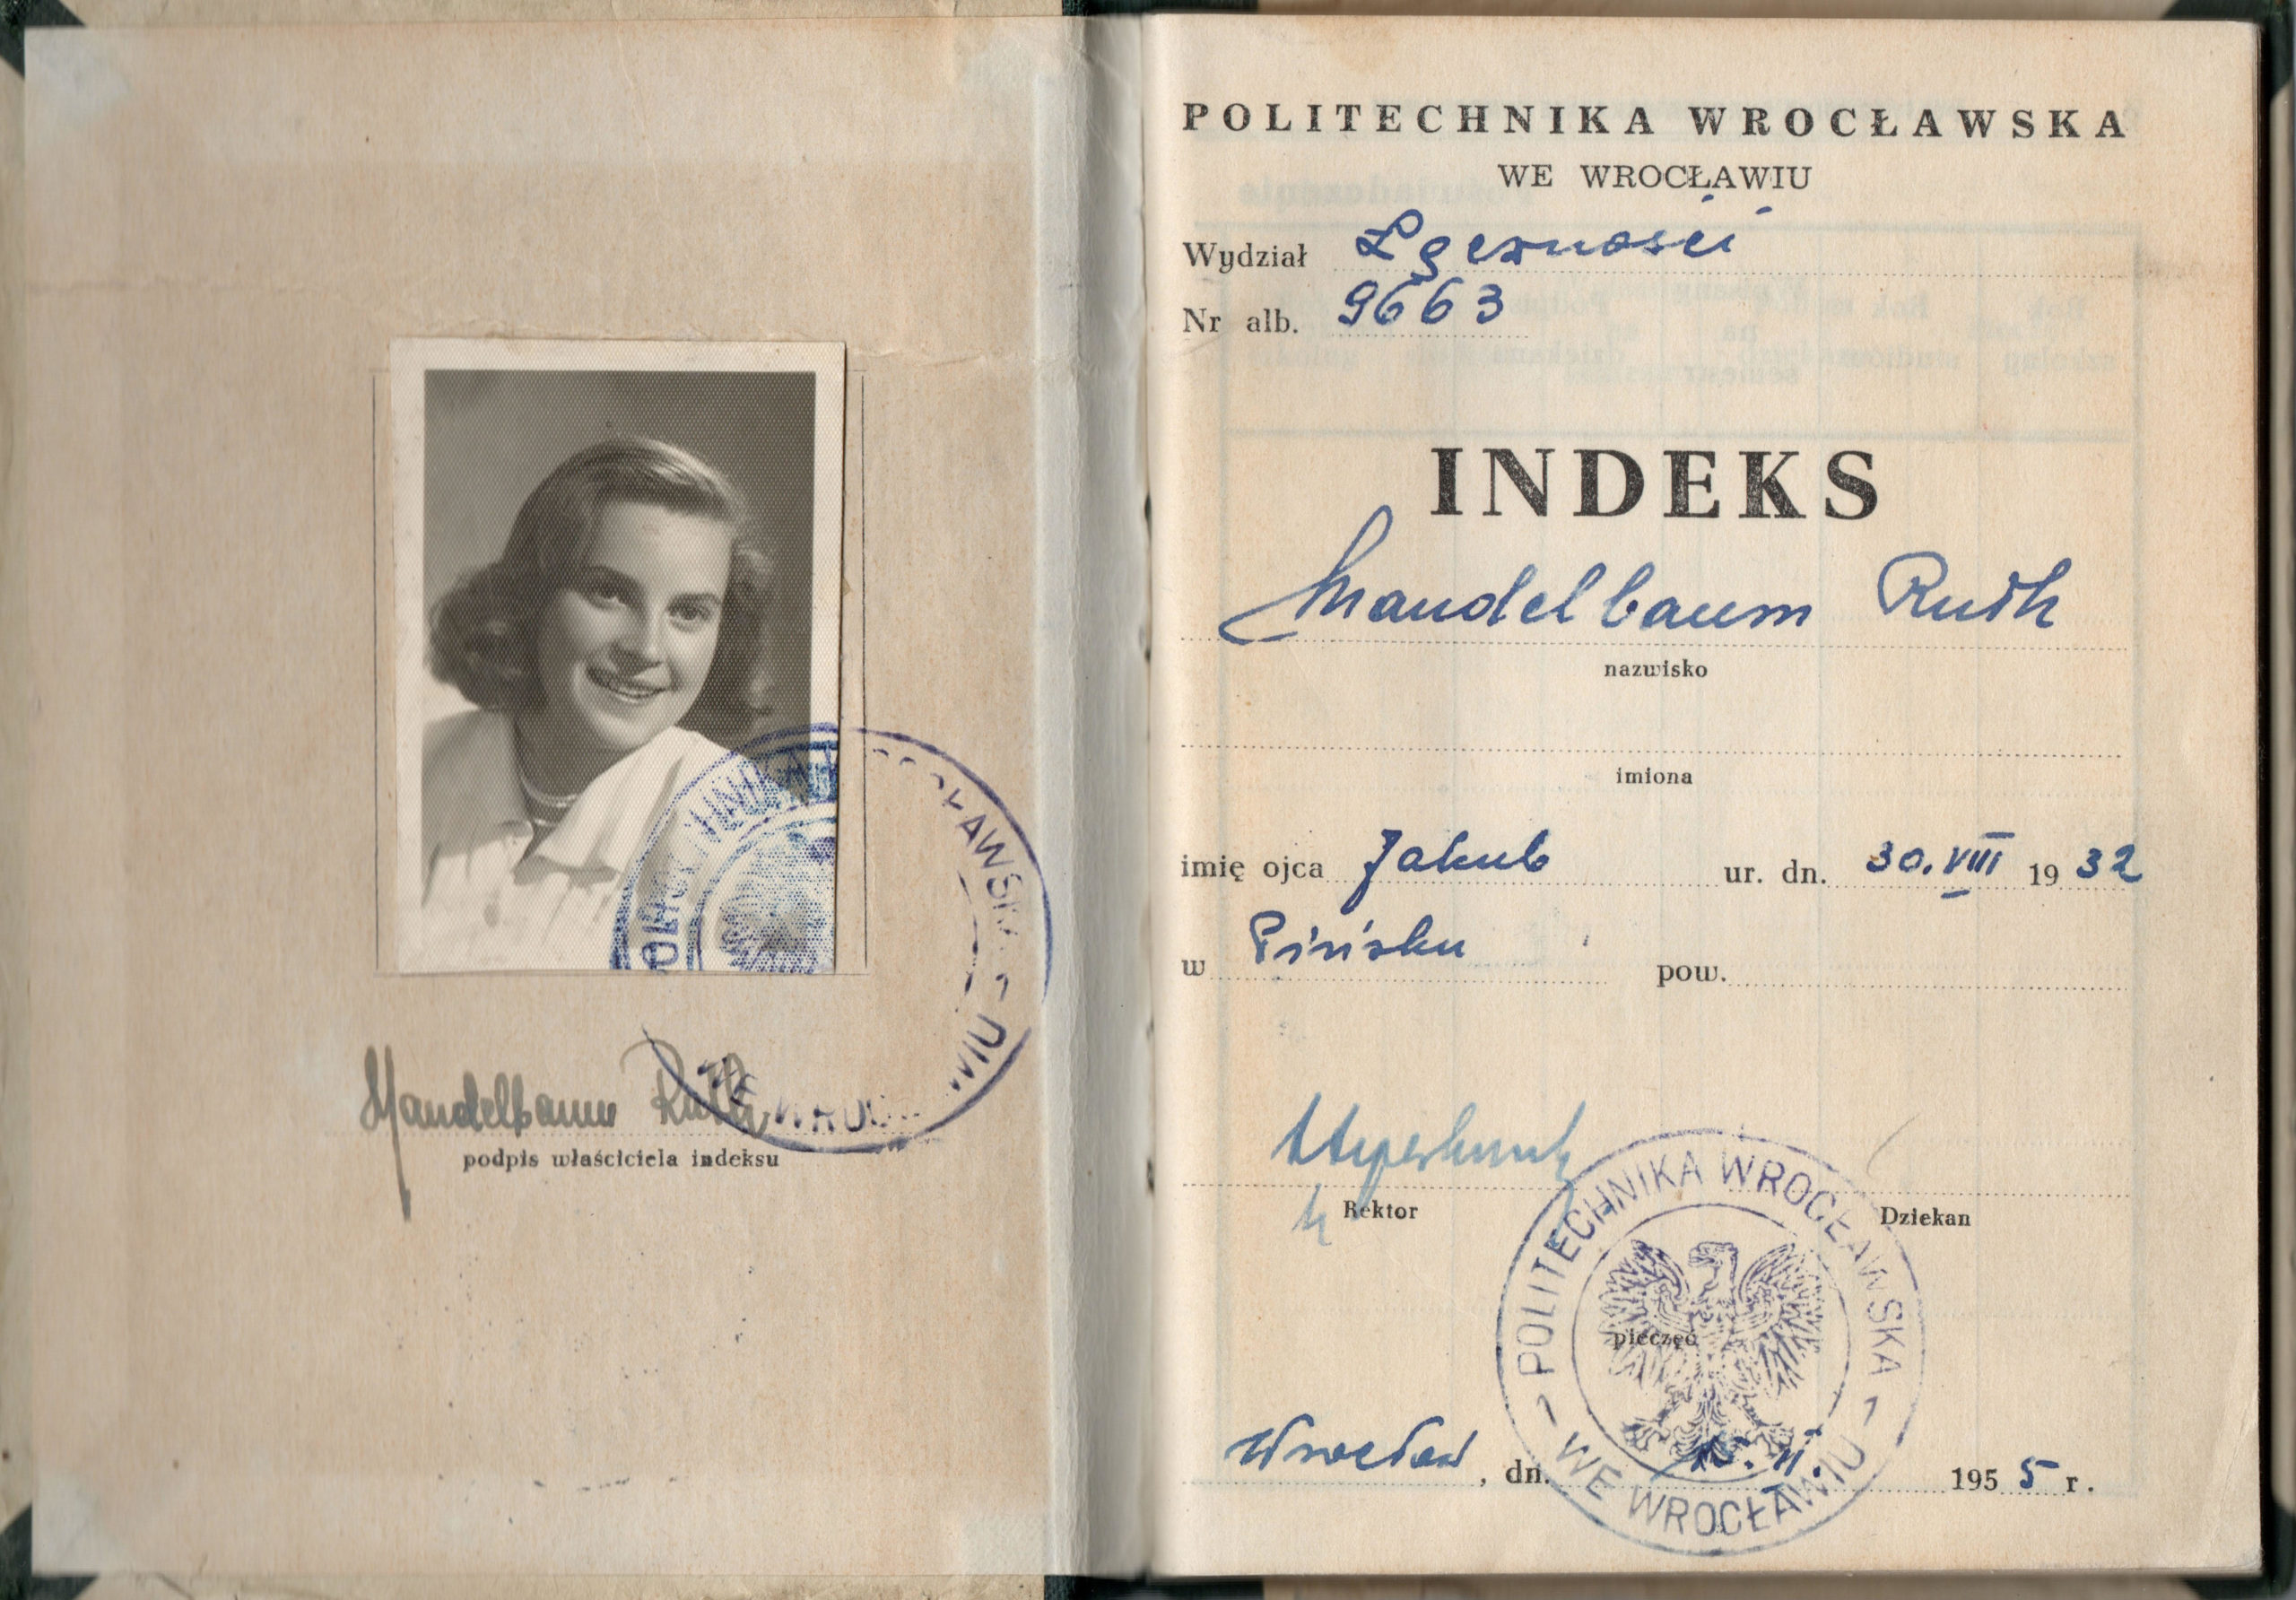 POLICHNIKA WROCŁAWSKA
WE WROCŁAWIU
Mandelbaum Ruth
podpis właściciela indeksu
POLITECHNIKA WROCŁAWSKA
WE WROCŁAWIU
Wydział Łączności
Nr alb. 9663
INDEKS
Mandelbaum Ruth
nazwisko
imiona
imię ojca Jakub ur. dn. 30.VIII 1932
w Pińsku pow.
Rektor Dziekan
POLITECHNIKA WROCŁAWSKA
WE WROCŁAWIU
pieczęć
Wrocław, dn. 1955 r.